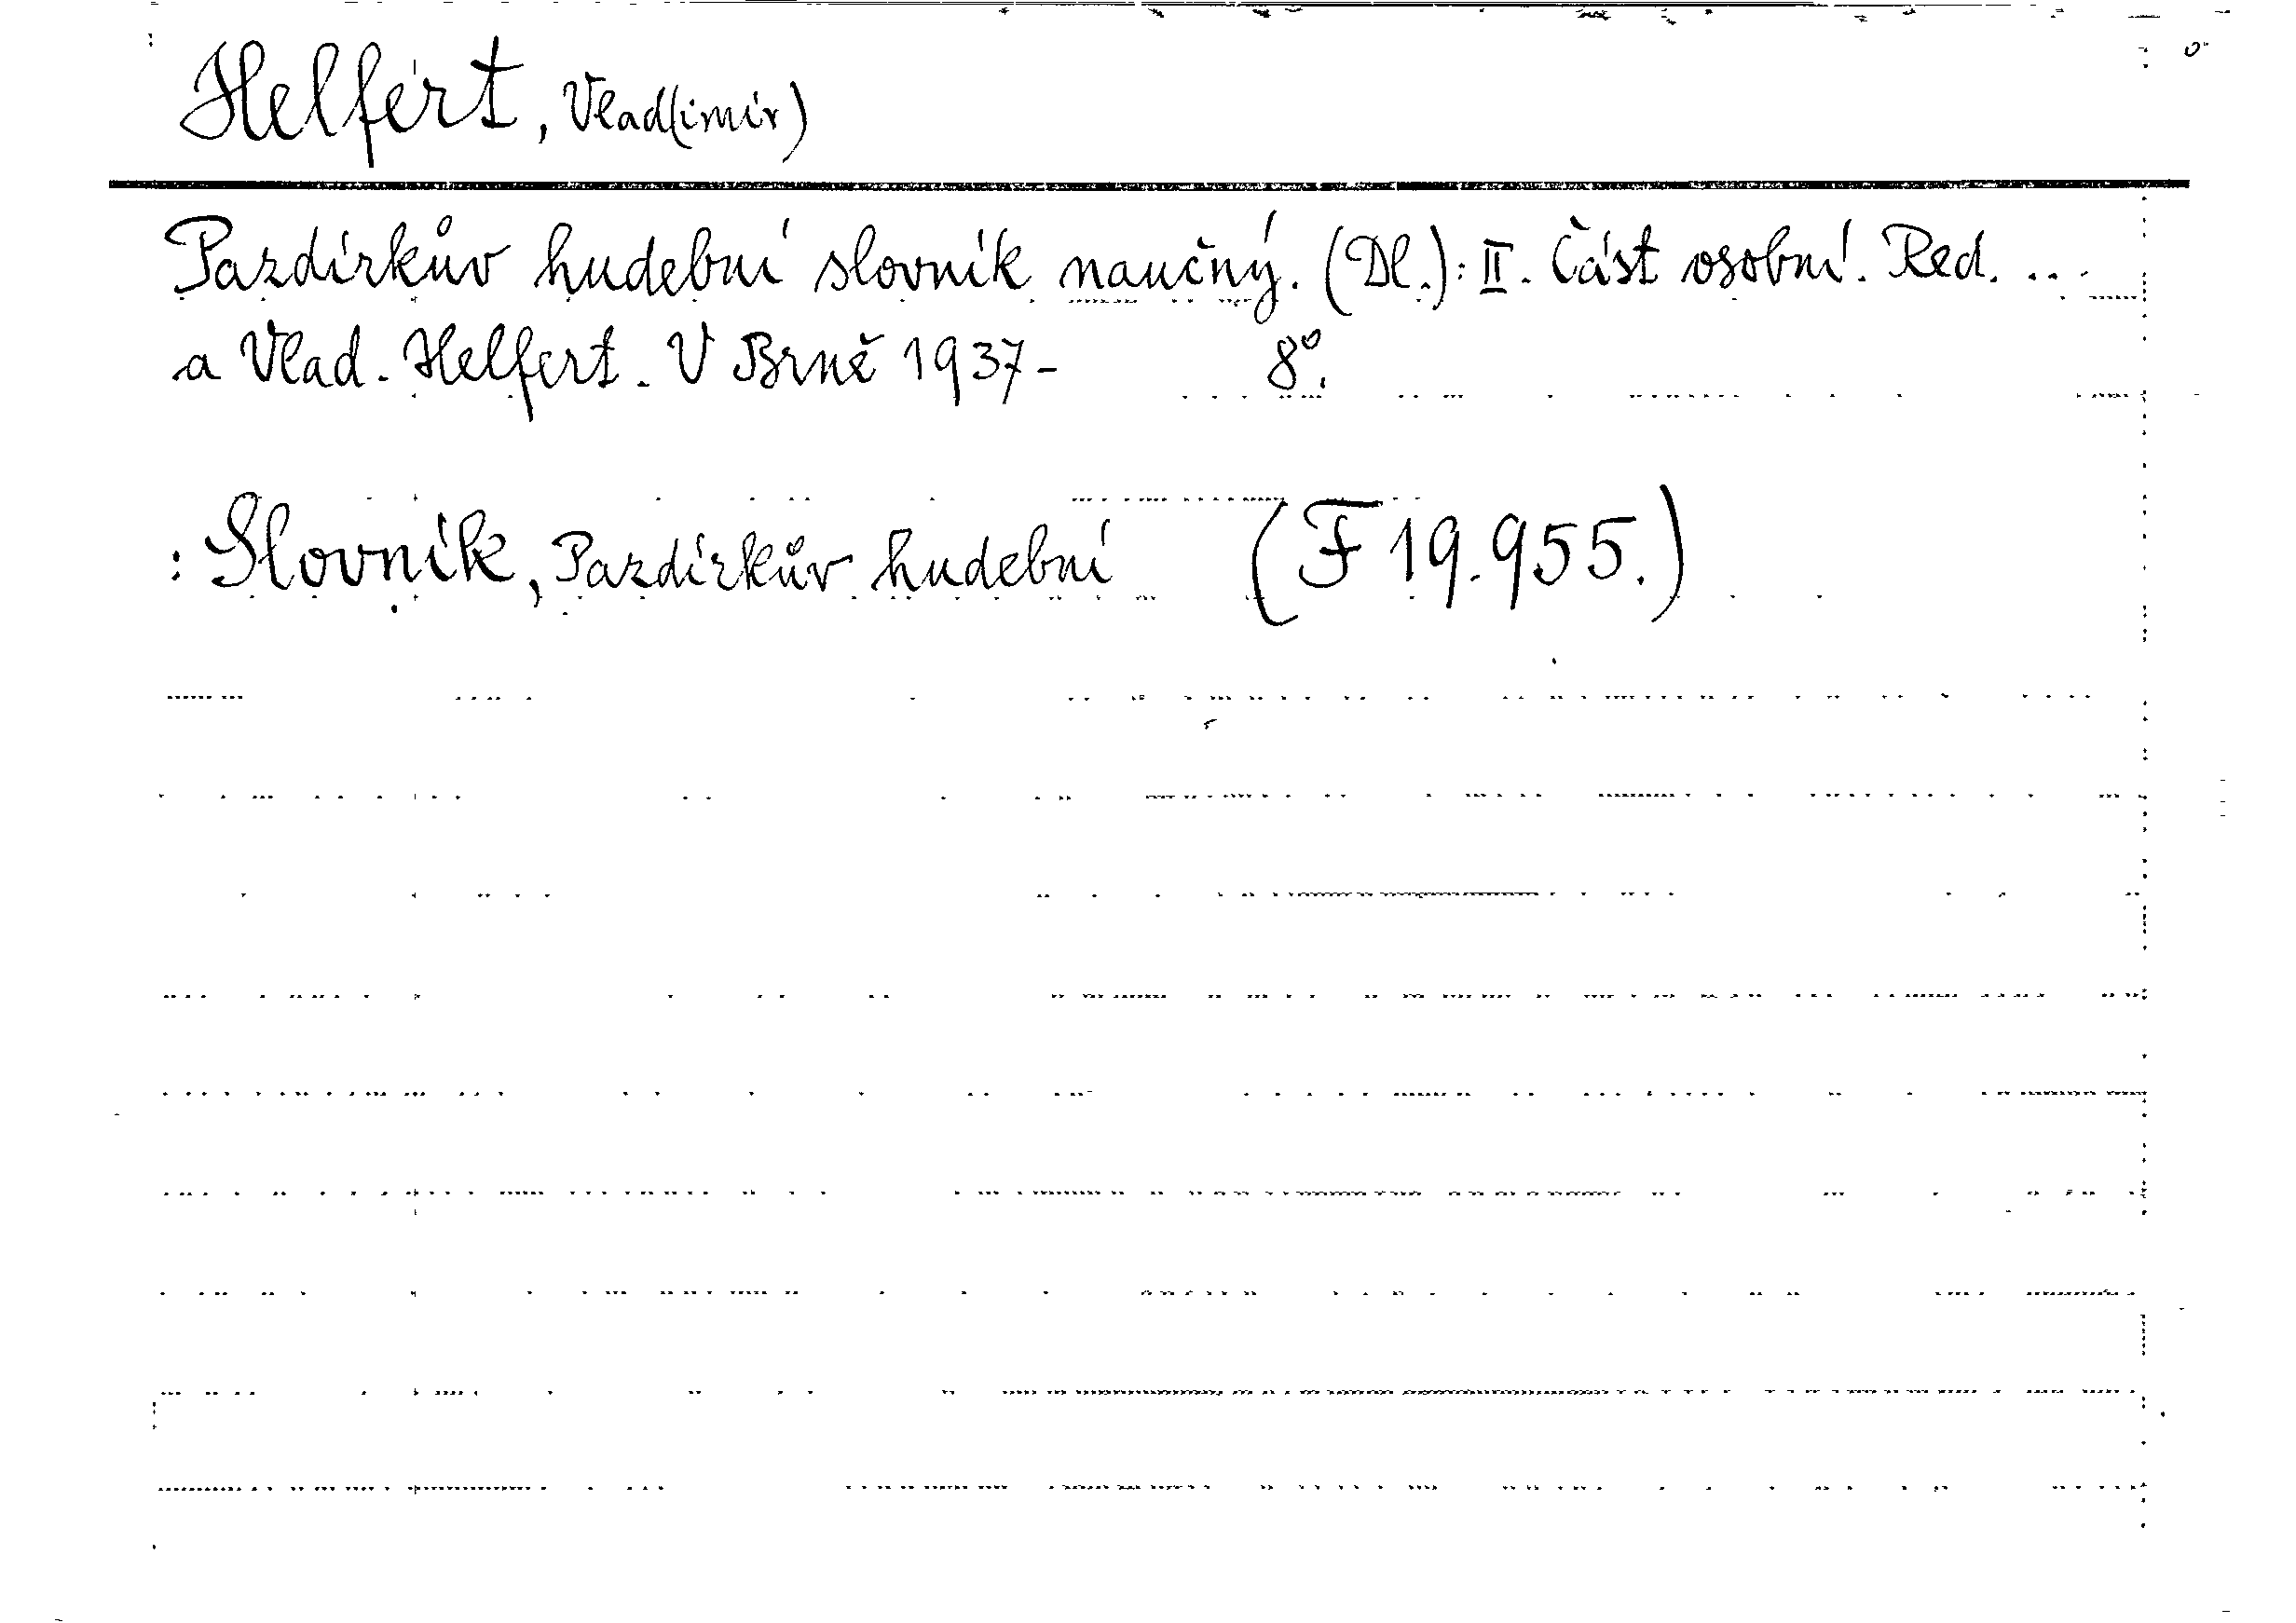 Helfert, Vlad(imír)
Pazdírkův hudební slovník naučný. (Dl.): II. Část osobní. Red. ...
a Vlad. Helfert. V Brně 1937- 8°.
: Slovník, Pazdírkův hudební (F 19.955.)